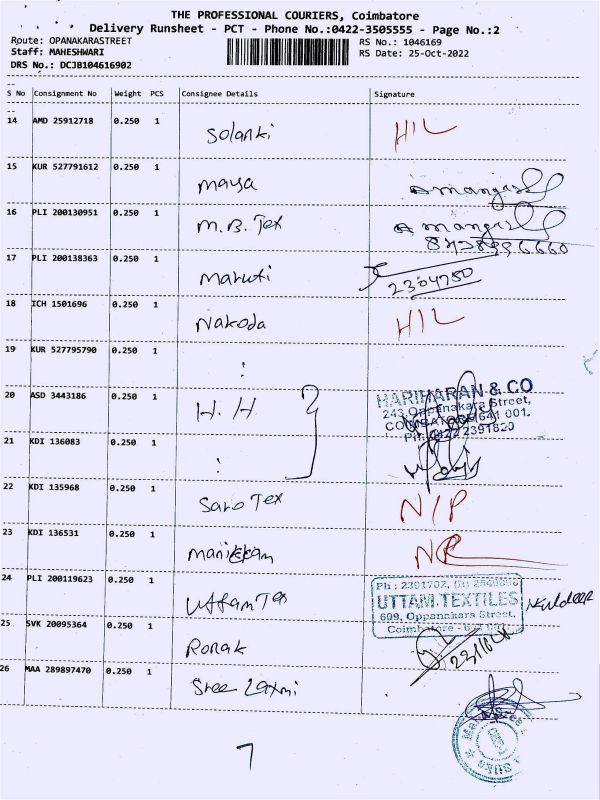 THE PROFESSIONAL COURIERS, Coimbatore
Delivery Runsheet - PCT - Phone No.:0422-3505555 - Page No.:2
Route: OPANAKARASTREET
RS No.: 1046169
Staff: MAHESHWARI
RS Date: 25-Oct-2022
DRS No.: DCJB104616902
S No Consignment No Weight PCS Consignee Details Signature
14 AMD 25912718 0.250 1 Solanki H/L
15 KUR 527791612 0.250 1 Maya
16 PLI 200130951 0.250 1 M.B. Tex
17 PLI 200138363 0.250 1 Maruti 2304750
18 ICH 1501696 0.250 1 Nakoda H/L
19 KUR 527795790 0.250 1 :
20 ASD 3443186 0.250 1 H.H
HARIHARAN & CO
243, Oppanakara Street,
COIMBATORE-641 001.
Ph: 0422 2391820
21 KDI 136083 0.250 1 :
22 KDI 135968 0.250 1 Saro Tex N/P
23 KDI 136531 0.250 1 Manikkam NR
24 PLI 200119623 0.250 1 Uttam Tex
UTTAM TEXTILES
609, Oppanakara Street,
25 SVK 20095364 0.250 1 Ronak
26 MAA 289897470 0.250 1 Sree Laxmi
7